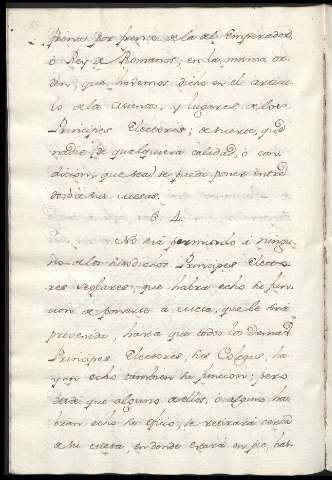 poner por frente de la del Emperador,
ó Rey de Romanos; en la misma or
den, que havemos dicho en el articu
lo de las Mesas, y lugares de los
Principes Electores; de suerte, que
nadie, de qualquiera calidad, ó con
dicion, que sea, se pueda poner entre
dos de sus mesas.
§ 4.
No será permitido á ningu
no de los susodichos Principes Electo
res seglares, que habrá echo su fun
cion de ponerse á mesa, que le está
prevenida, hasta que todos los demas
Principes Electores, sus Colegas, ha
yan echo tambien su funcion; pero
desde que alguno de ellos, ó algunos ha
bran echo su oficio, se retirará cerca
de su mesa, en donde estará en pie, has